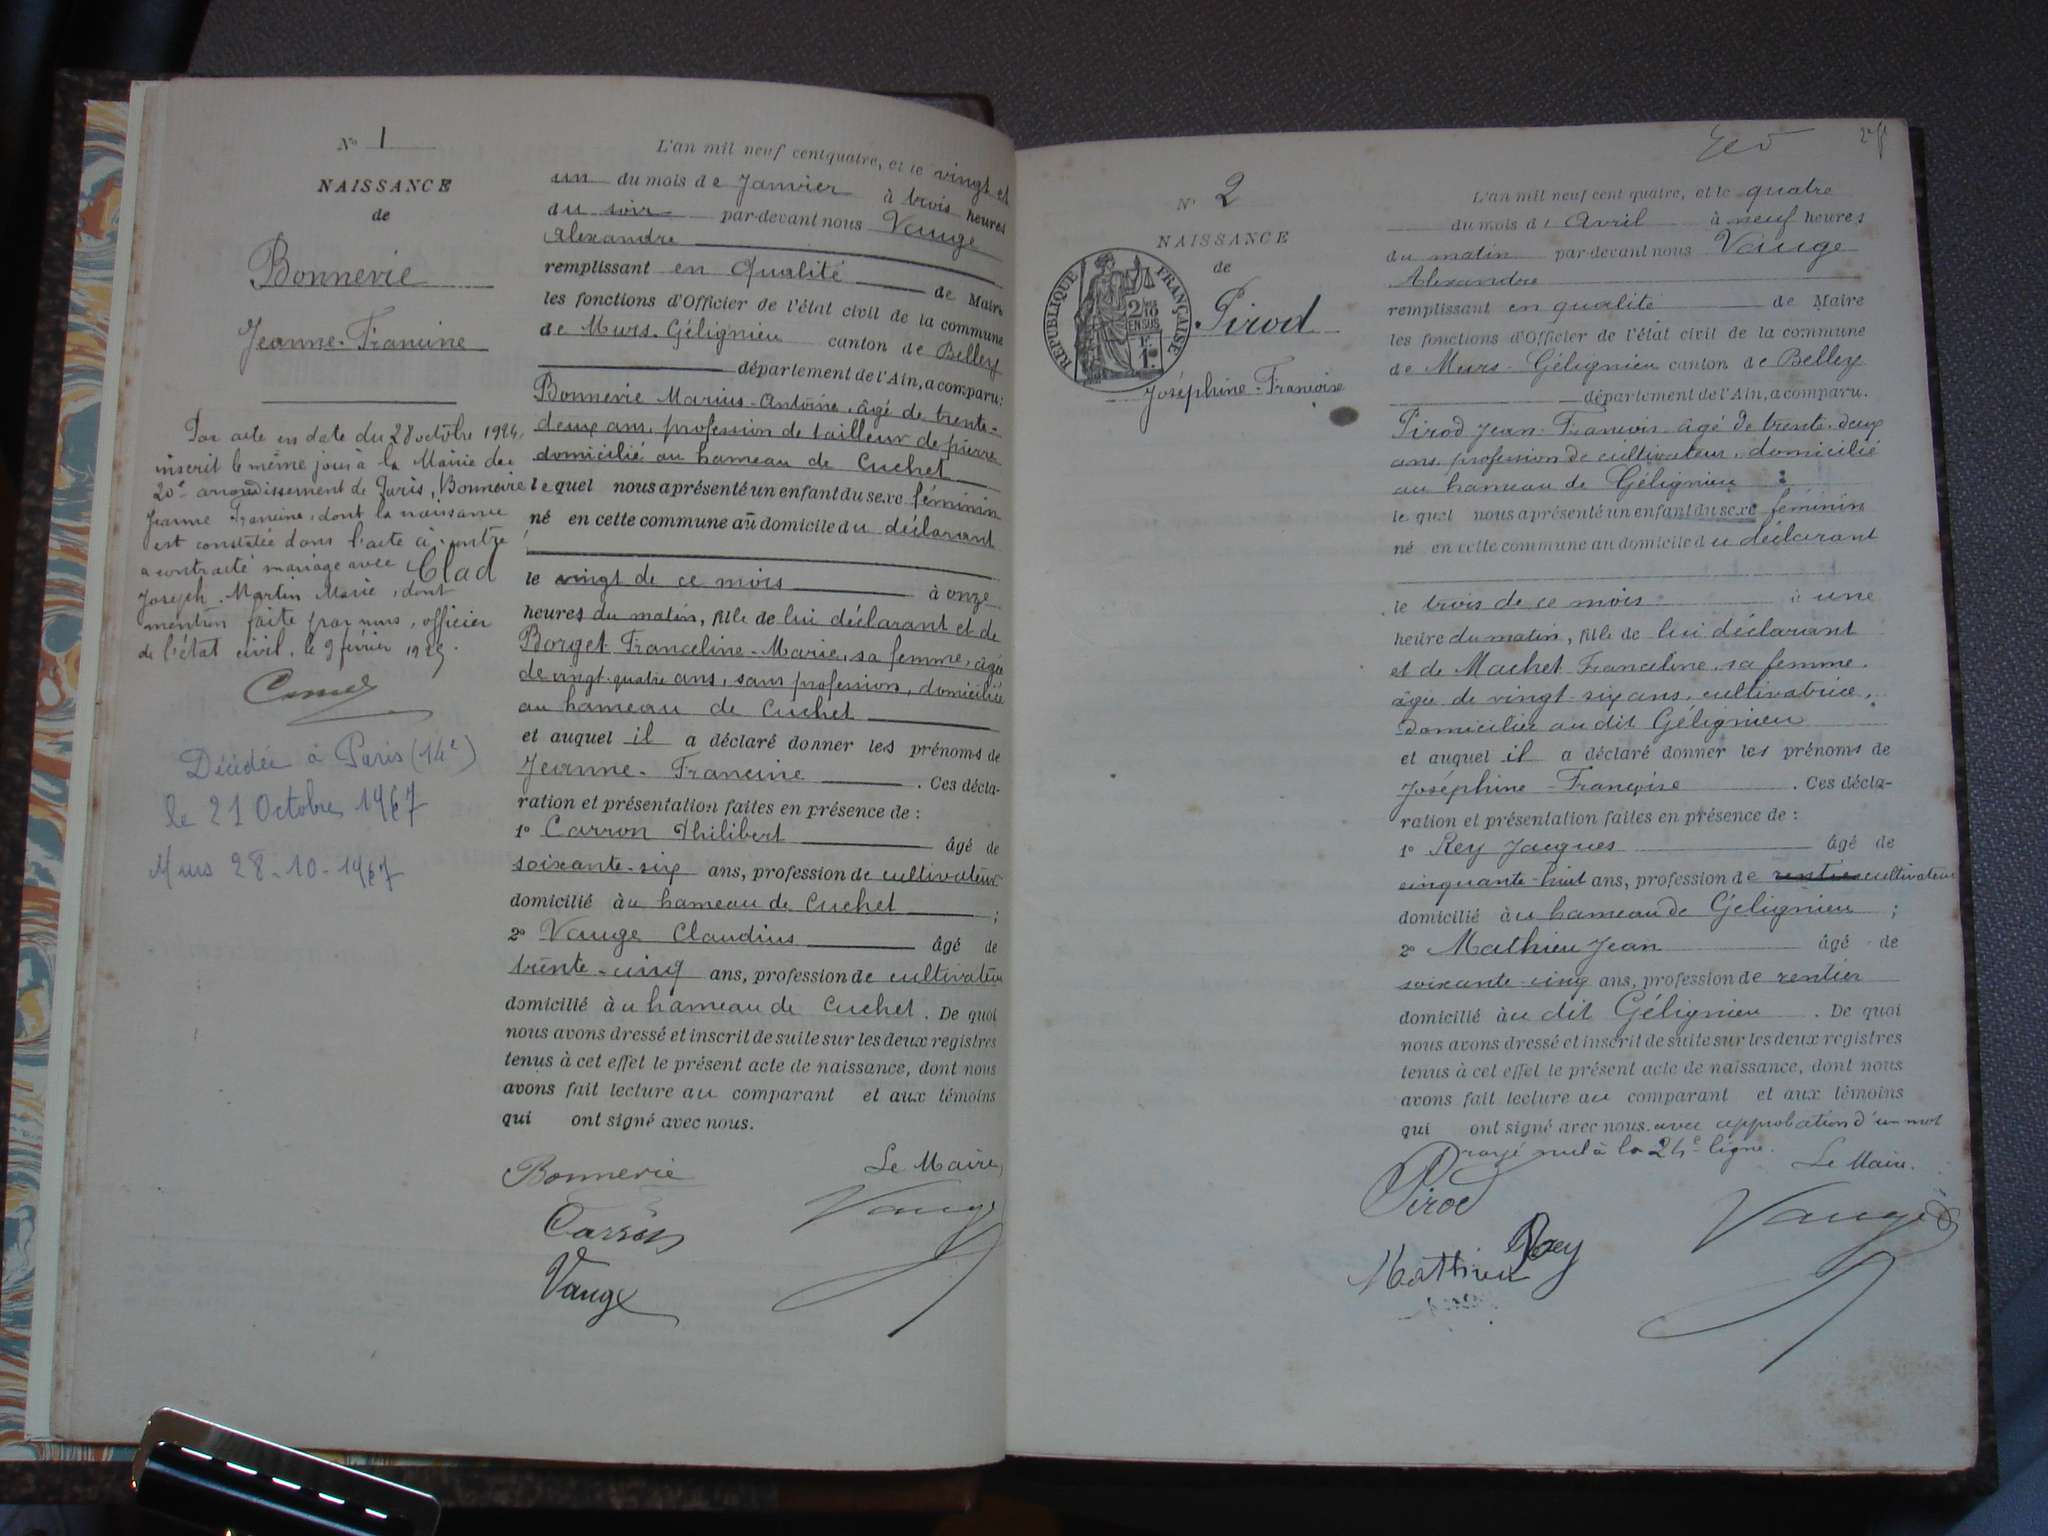 N° 1
NAISSANCE
de
Bonnerie
Jeanne-Francine
Par acte en date du 28 octobre 1924,
inscrit le même jour à la Mairie du
20e arrondissement de Paris, Bonnerie
Jeanne Francine, dont la naissance
est constatée dans l'acte ci-contre
a contracté mariage avec Clad
Joseph Martin Marie, dont
mention faite par nous, officier
de l'état civil, le 9 février 1925.
Décédée à Paris (14e)
le 21 Octobre 1967
Murs 28-10-1967
L'an mil neuf cent quatre, et le vingt et
un du mois de Janvier à trois heures
du soir par-devant nous Vauge
Alexandre
remplissant en qualité de Maire
les fonctions d'Officier de l'état civil de la commune
de Murs-Gélignieu canton de Belley
département de l'Ain, a comparu:
Bonnerie Marius-Antoine, âgé de trente-
deux ans, profession de tailleur de pierre
domicilié au hameau de Cuchet
lequel nous a présenté un enfant du sexe féminin
né en cette commune au domicile du déclarant
le vingt de ce mois à onze
heures du matin, fille de lui déclarant et de
Borget Franceline-Marie, sa femme, âgée
de vingt-quatre ans, sans profession, domiciliée
au hameau de Cuchet
et auquel il a déclaré donner les prénoms de
Jeanne-Francine . Ces décla-
ration et présentation faites en présence de :
1° Carron Philibert âgé de
soixante-six ans, profession de cultivateur
domicilié au hameau de Cuchet ;
2° Vauge Claudius âgé de
trente-cinq ans, profession de cultivateur
domicilié au hameau de Cuchet . De quoi
nous avons dressé et inscrit de suite sur les deux registres
tenus à cet effet le présent acte de naissance, dont nous
avons fait lecture au comparant et aux témoins
qui ont signé avec nous.
Bonnerie Le Maire,
Carron Vauge
Vauge
N° 2
NAISSANCE
de
RÉPUBLIQUE FRANÇAISE
2/10
EN SUS
Pirod
Joséphine-Françoise
L'an mil neuf cent quatre, et le quatre
du mois d'Avril à neuf heures
du matin par-devant nous Vauge
Alexandre
remplissant en qualité de Maire
les fonctions d'Officier de l'état civil de la commune
de Murs-Gélignieu canton de Belley
département de l'Ain, a comparu.
Pirod Jean-François âgé de trente-deux
ans, profession de cultivateur, domicilié
au hameau de Gélignieu
lequel nous a présenté un enfant du sexe féminin
né en cette commune au domicile du déclarant
le trois de ce mois à une
heure du matin, fille de lui déclarant
et de Machet Franceline, sa femme,
âgée de vingt-six ans, cultivatrice,
domiciliée au dit Gélignieu
et auquel il a déclaré donner les prénoms de
Joséphine-Françoise . Ces décla-
ration et présentation faites en présence de :
1° Rey Jacques âgé de
cinquante-huit ans, profession de rentier cultivateur
domicilié au hameau de Gélignieu ;
2° Mathieu Jean âgé de
soixante-cinq ans, profession de rentier
domicilié au dit Gélignieu . De quoi
nous avons dressé et inscrit de suite sur les deux registres
tenus à cet effet le présent acte de naissance, dont nous
avons fait lecture au comparant et aux témoins
qui ont signé avec nous. avec approbation d'un mot
rayé nul à la 24e ligne. Le Maire.
Pirod Vauge
Mathieu Rey